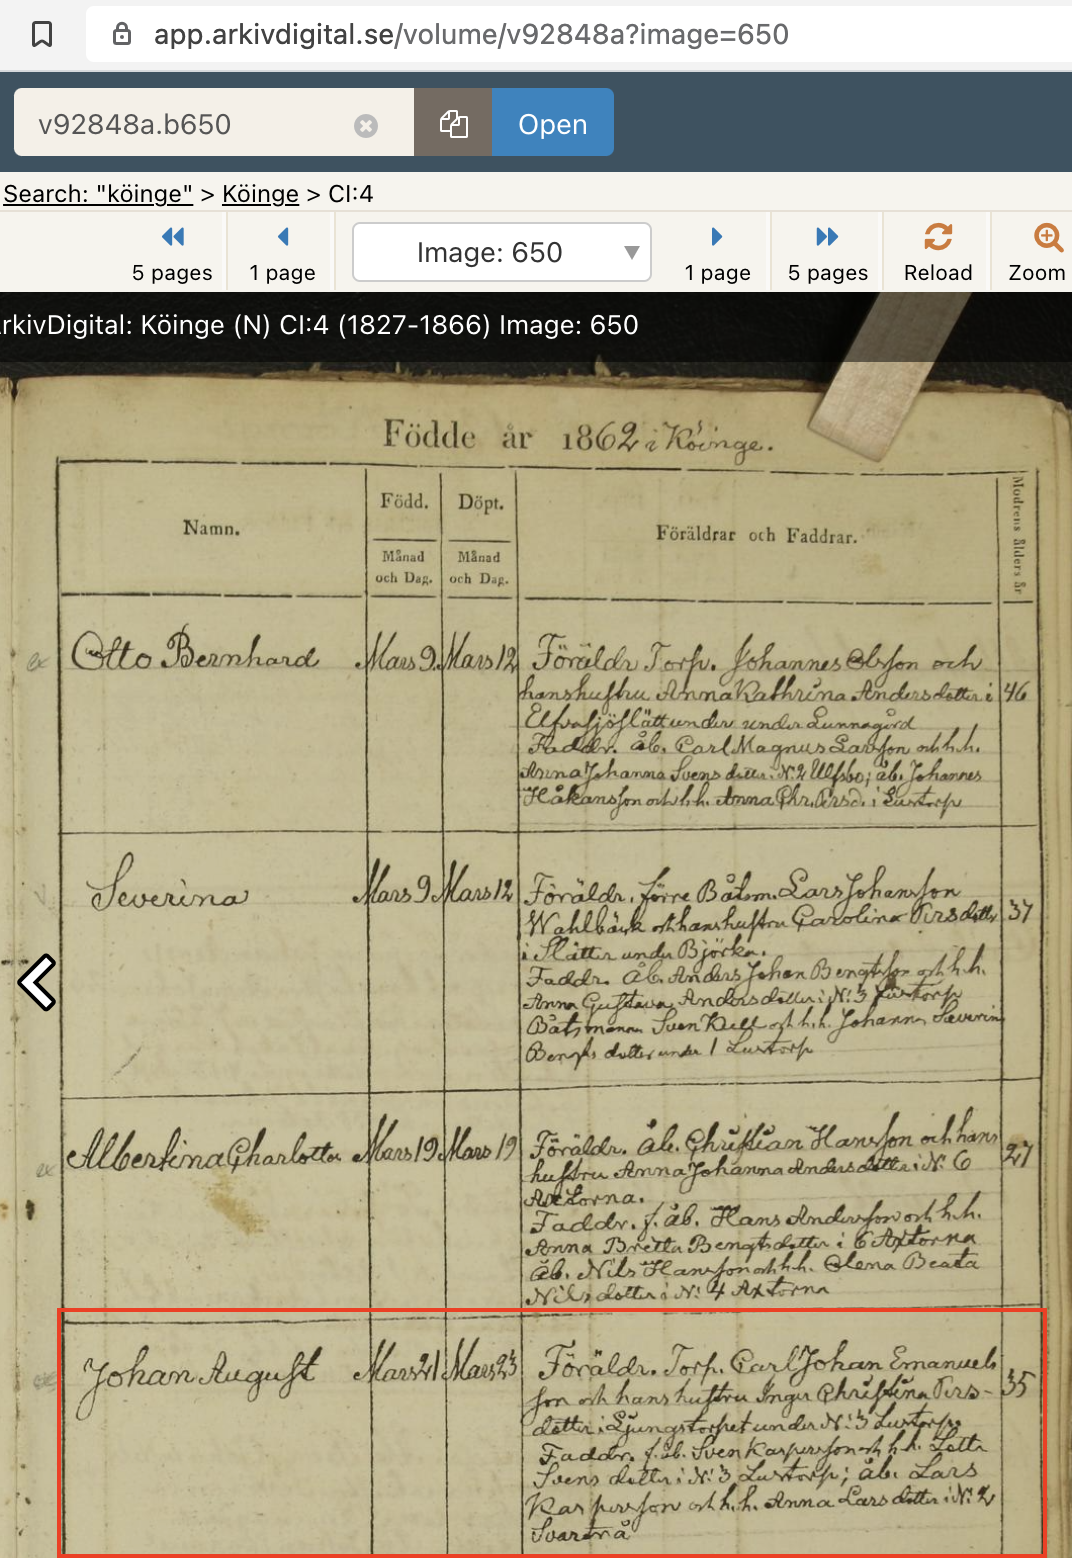 app.arkivdigital.se/volume/v92848a?image=650
v92848a.b650
Open
Search: "köinge" > Köinge > CI:4
5 pages
1 page
Image: 650
1 page
5 pages
Reload
Zoom
rkivDigital: Köinge (N) CI:4 (1827-1866) Image: 650
Födde år 1862 i Köinge.
Namn.
Född.
Månad
och Dag.
Döpt.
Månad
och Dag.
Föräldrar och Faddrar.
Modrens ålders år
Otto Bernhard
Mars 9.
Mars 12
Föräldr Torp. Johannes Olsson och
hans hustru Anna Kathrina Andersdotter i
under Lunnagård
Faddr. åb. Carl Magnus Larsson och h.h.
Anna Johanna Svensdotter i N:2 Ulfsbo; åb. Johannes
Håkansson och h.h. Anna Chr. Persd. i Lustorp
46
Severina
Mars 9.
Mars 12
Föräldr. förre Båtsm. Lars Johansson
Wahlbäck och hans hustru Carolina Persdotter
i Slätten under Björka.
Faddr. åb. Anders Johan Bengtsson och h.h.
Anna Gustava Andersdotter i N:3 Lustorp
Båtsmann Sven Kull och h.h. Johanna Severin
Bengtsdotter under 1 Lustorp
37
Albertina Charlotta
Mars 19
Mars 19
Föräldr. åb. Christian Hansson och hans
hustru Anna Johanna Andersdotter i N: 6
Axtorna.
Faddr. f. åb. Hans Andersson och h.h.
Anna Britta Bengtsdotter i 6 Axtorna
åb. Nils Hansson och h.h. Olena Beata
Nilsdotter i N: 4 Axtorna
27
Johan August
Mars 21
Mars 23
Föräldr. Torp. Carl Johan Emanuels
son och hans hustru Inger Christina Pers-
dotter i Ljungstorpet under N:3 Lustorp.
Faddr. f. åb. Sven Kaspersson och h.h. Lotta
Svensdotter i N:3 Lustorp; åb. Lars
Kaspersson och h.h. Anna Larsdotter i N:2
Svartrå
35